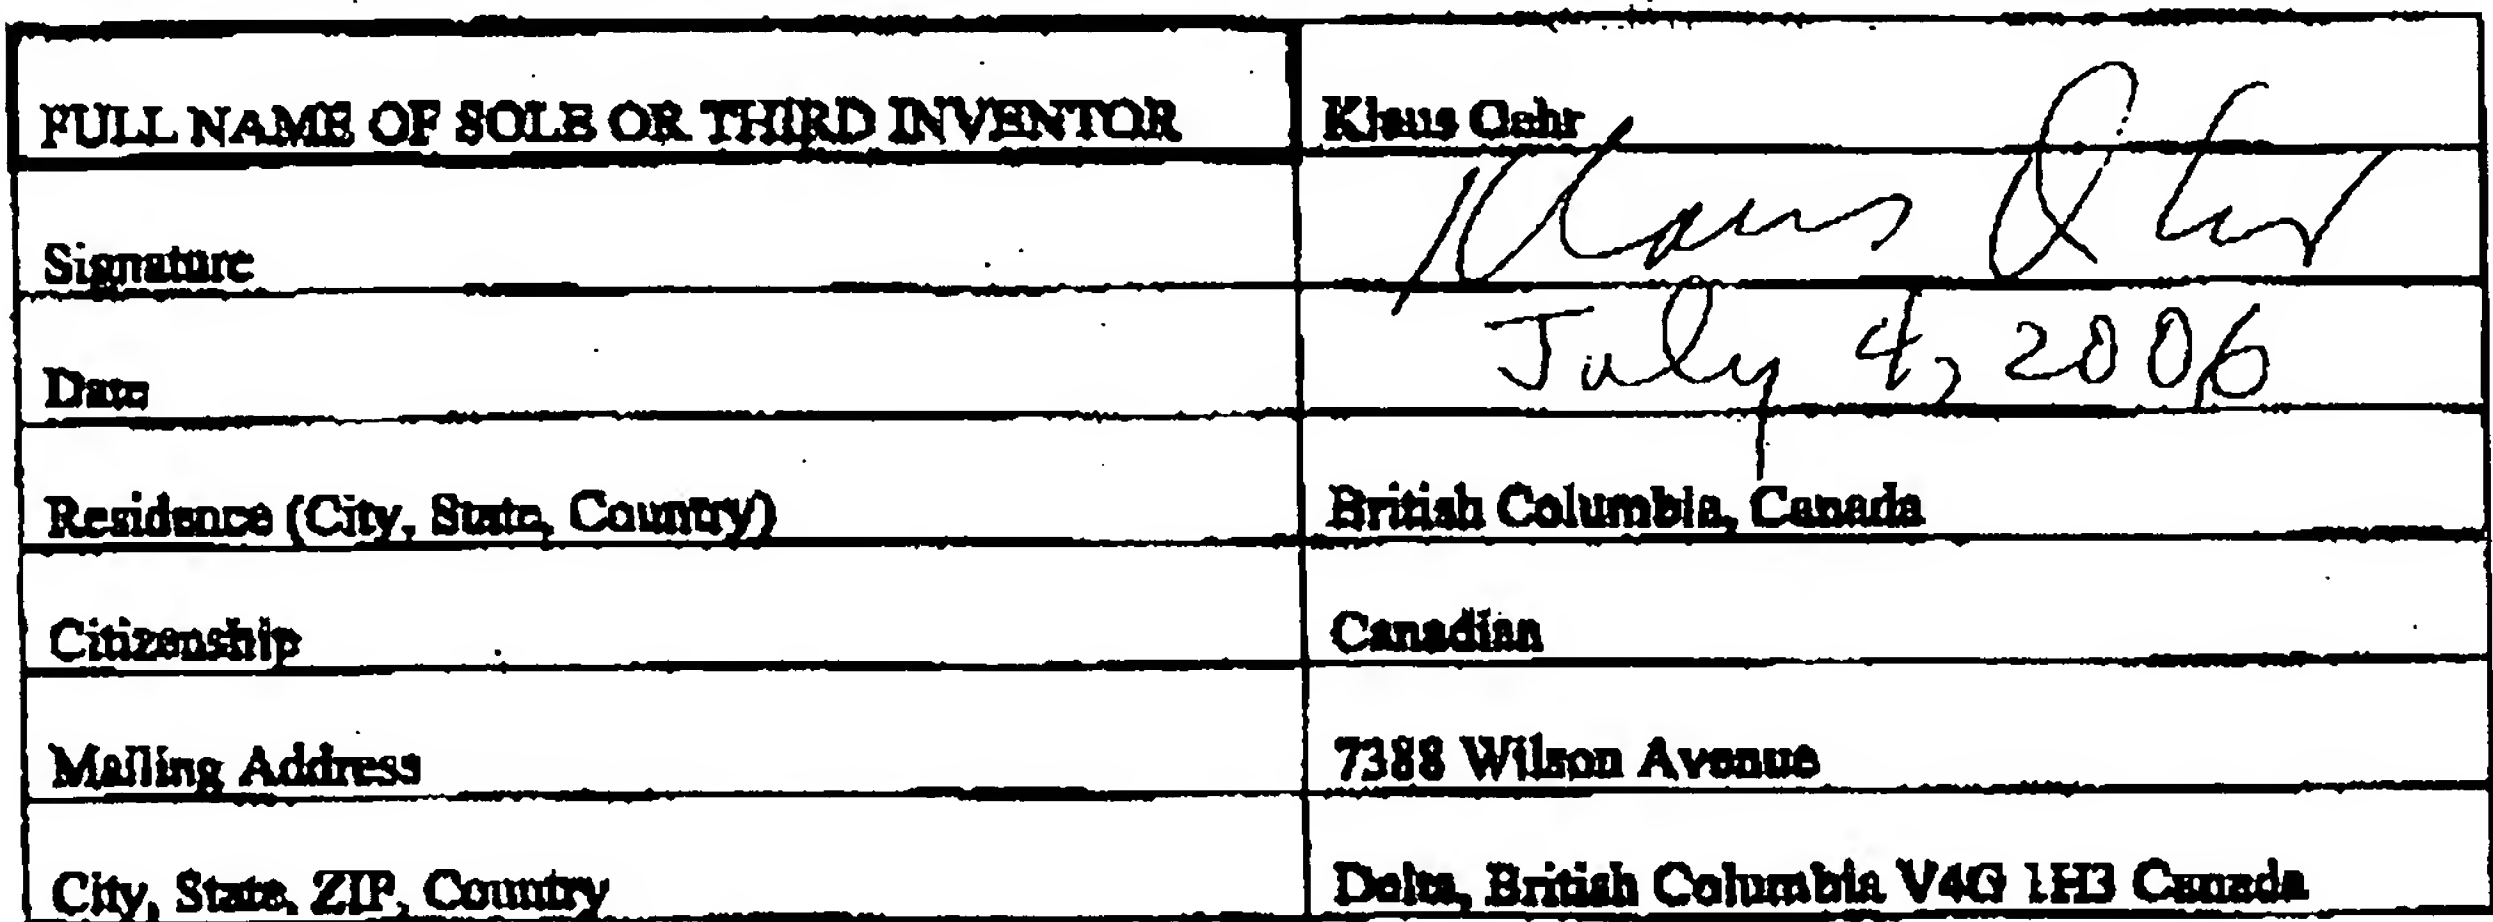 FULL NAME OF SOLE OR THIRD INVENTOR Klaus Oehr
Signature Klaus Oehr
Date July 4, 2006
Residence (City, State, Country) British Columbia, Canada
Citizenship Canadian
Mailing Address 7388 Wilson Avenue
City, State, ZIP, Country Delta, British Columbia V4G 1H3 Canada